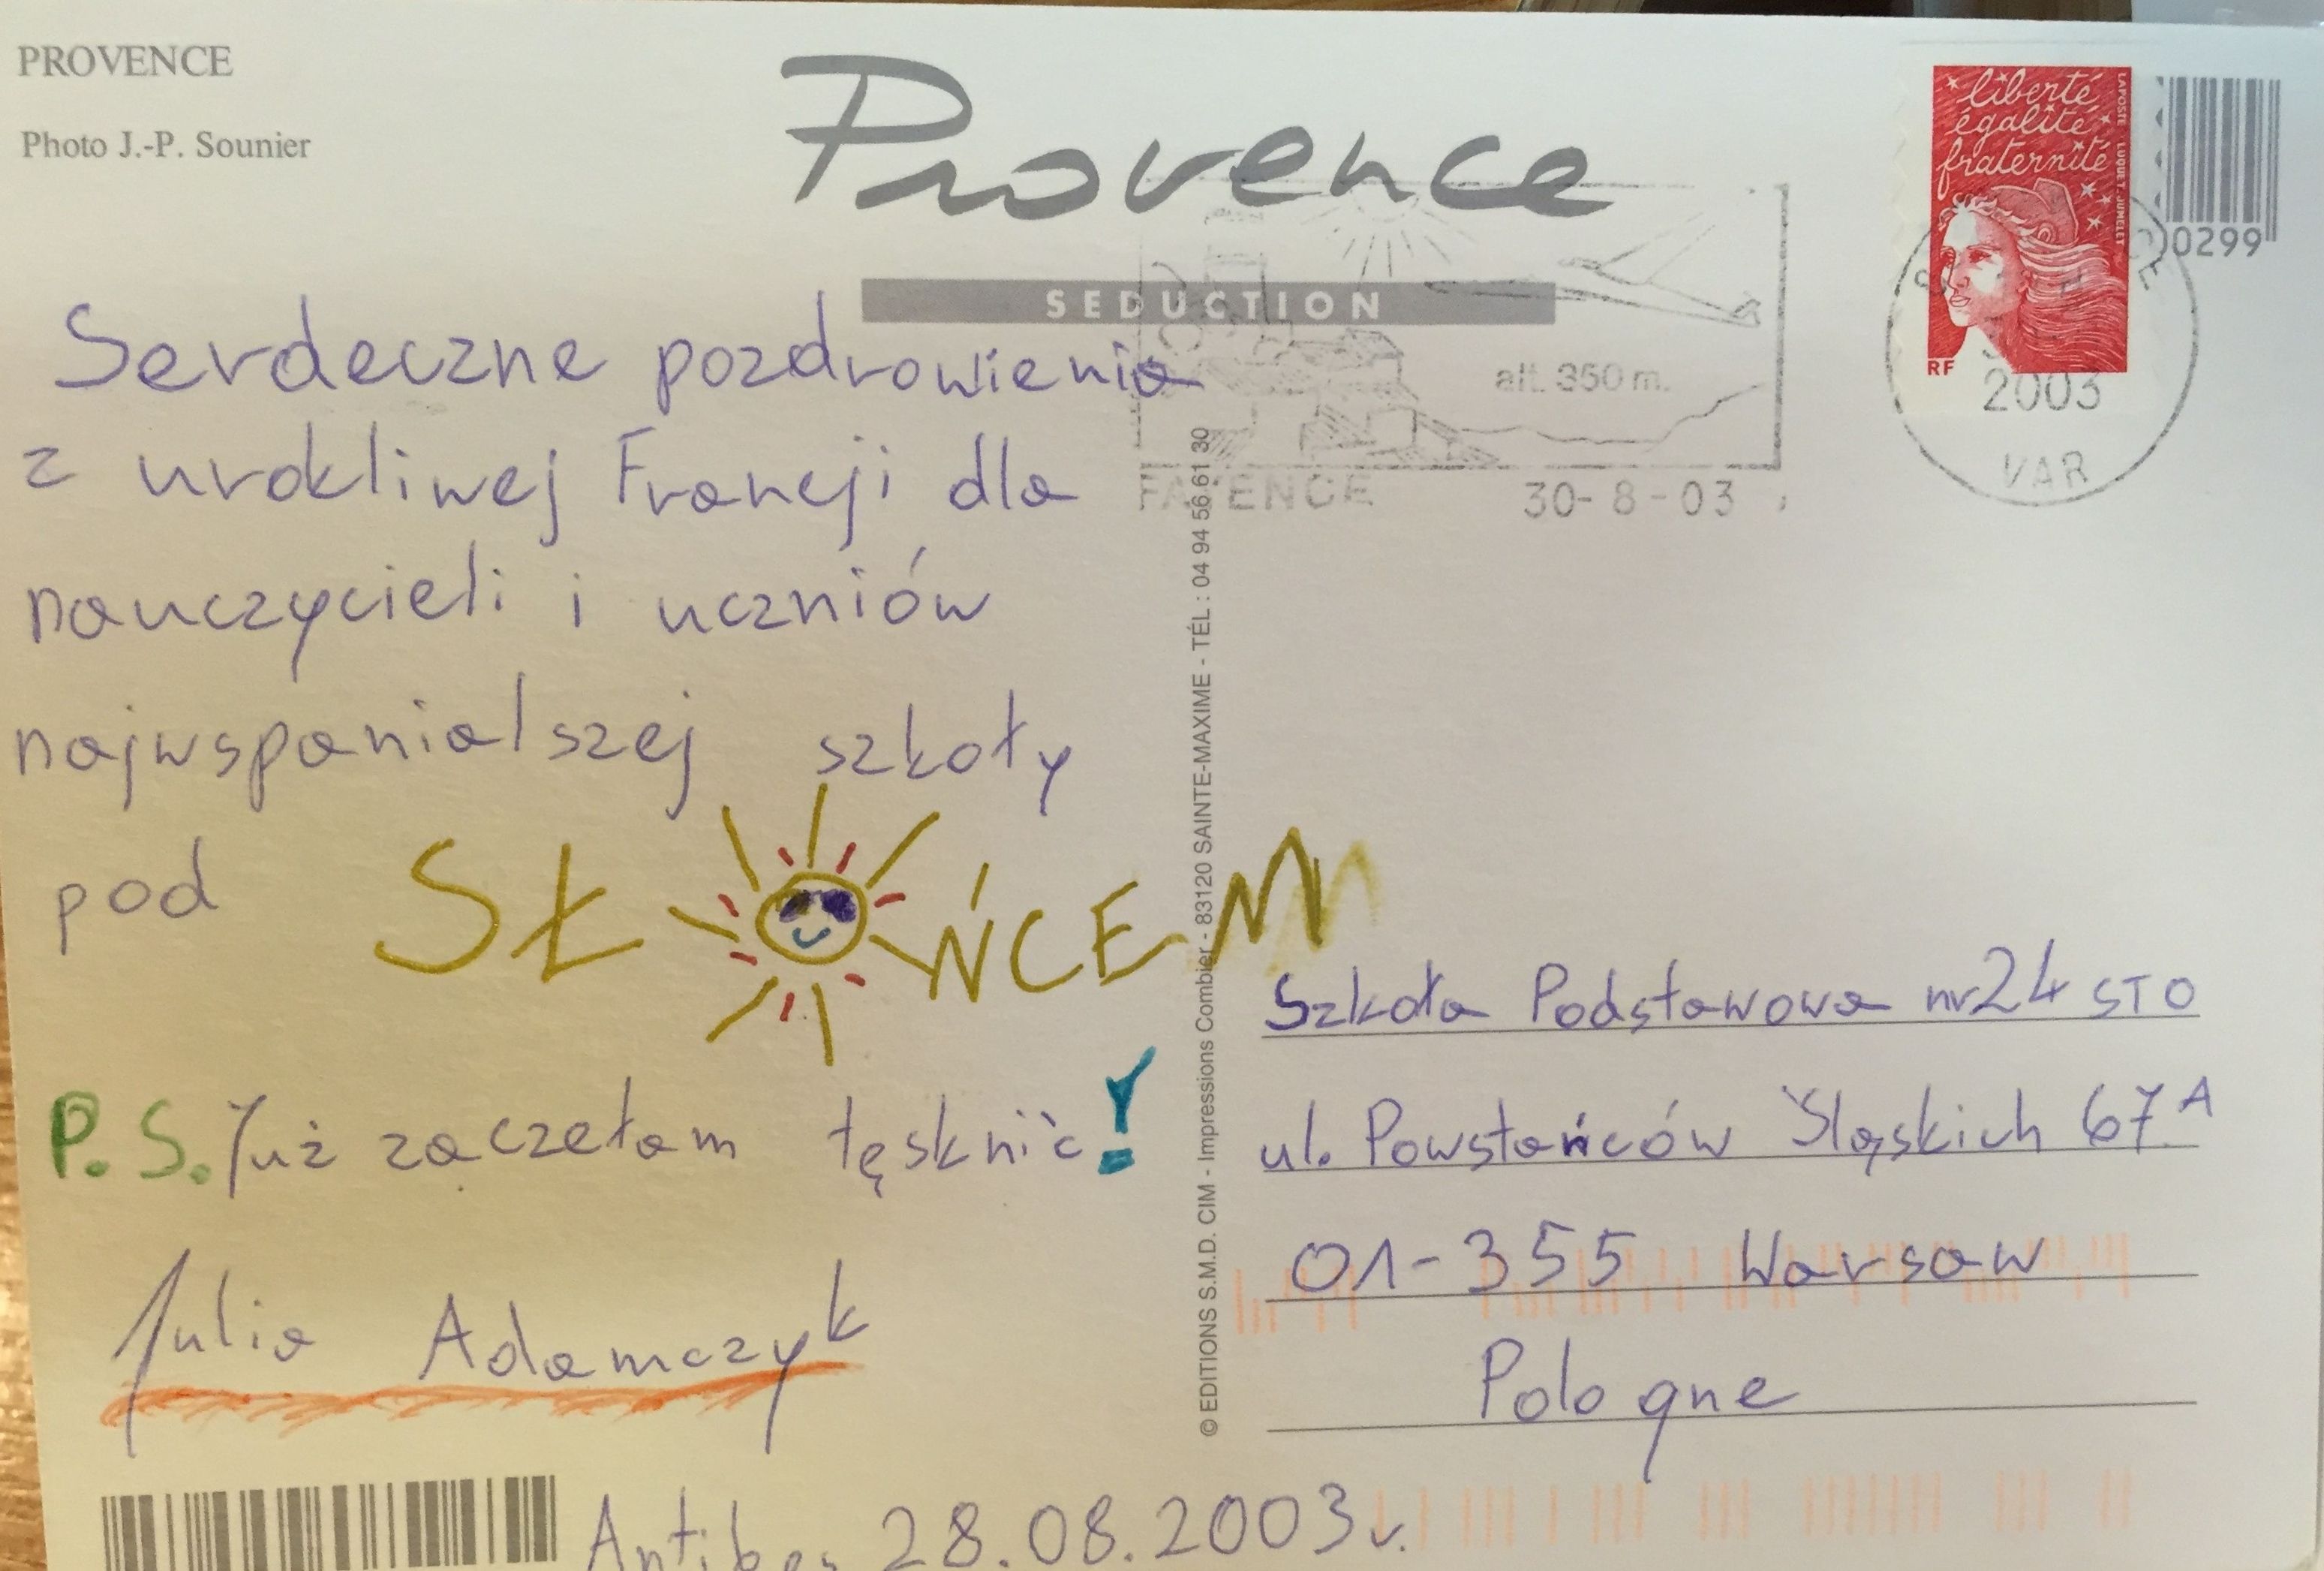 PROVENCE
Photo J.-P. Sounier
Provence
SEDUCTION
liberté
égalité
fraternité
LA POSTE LUQUET-JUMELET
RF
0299
2003
VAR
alt. 350 m.
FAYENCE 30-8-03
Serdeczne pozdrowienia
z urokliwej Francji dla
nauczycieli i uczniów
najwspanialszej szkoły
pod SŁOŃCEM
P.S. Już zaczęłam tęsknić!
Julia Adamczyk
Antibes 28.08.2003r.
© EDITIONS S.M.D. CIM - Impressions Combier - 83120 SAINTE-MAXIME - TÉL : 04 94 56 61 30
Szkoła Podstawowa nr 24 STO
ul. Powstańców Śląskich 67A
01-355 Warsaw
Pologne